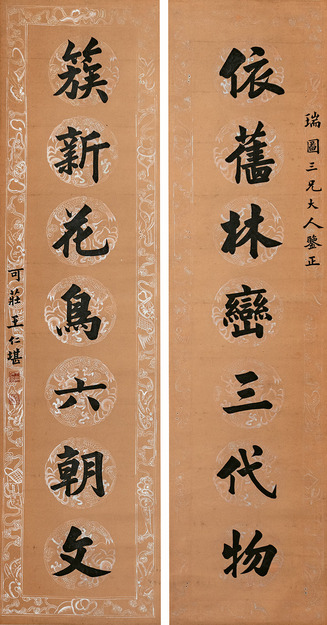 瑞圖三兄大人鑒正
依舊林巒三代物
簇新花鳥六朝文
可莊王仁堪